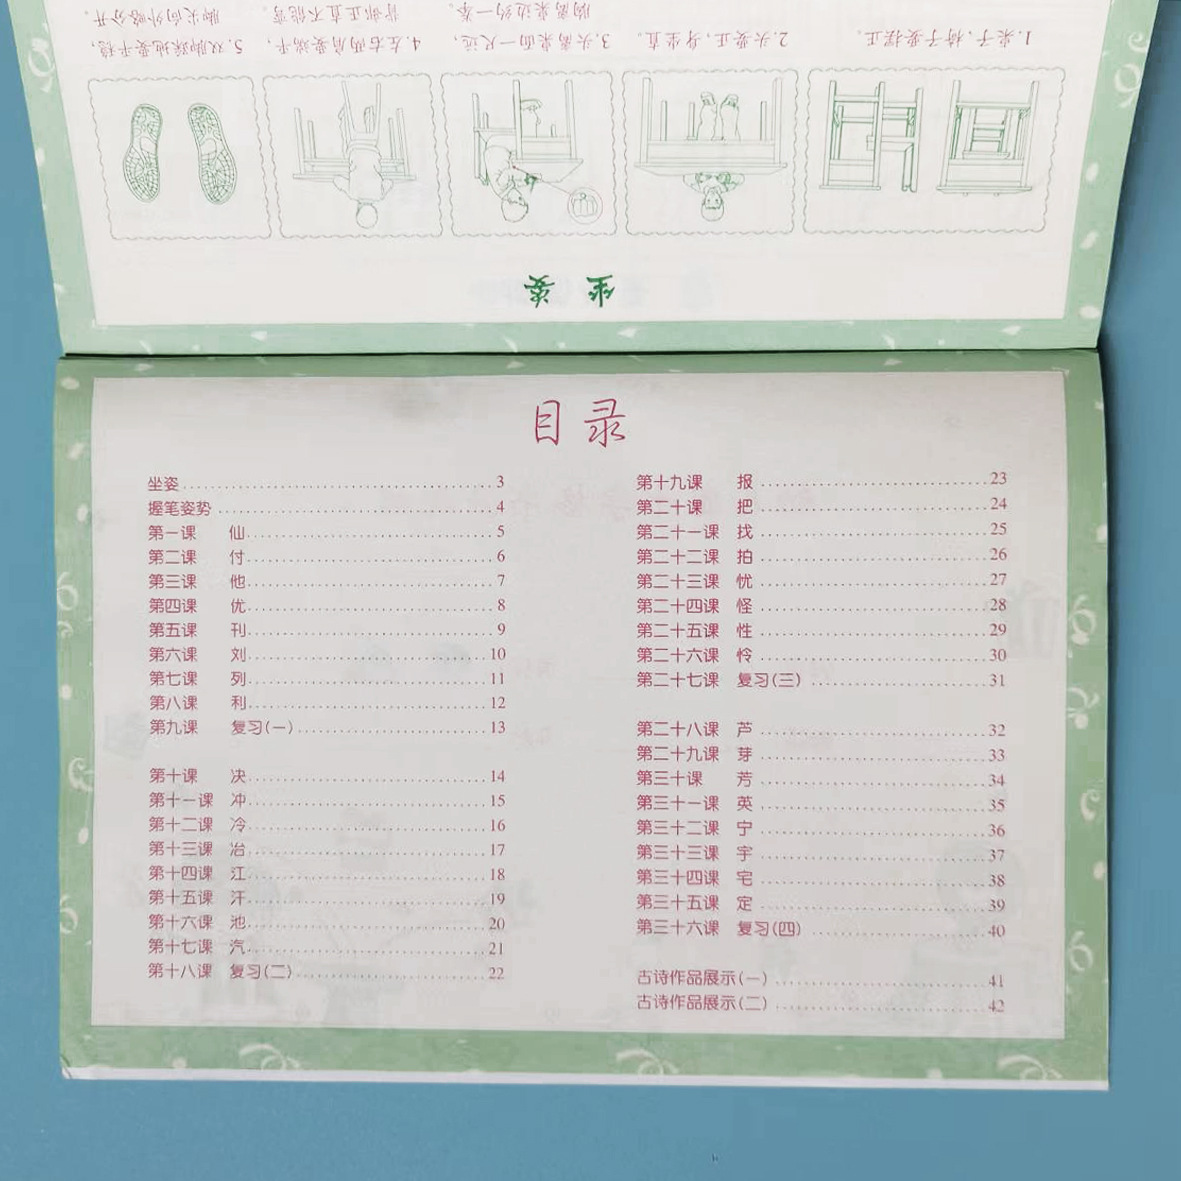 坐姿
1.桌子、椅子要摆正。
2.头要正,身坐直。
3.头离桌面一尺远,
胸离桌边约一拳。
4.左右两肩要端平,
背部正直不能弯。
5.双脚踩地要平稳,
脚尖向外略分开。
目录
坐姿 3
握笔姿势 4
第一课 仙 5
第二课 付 6
第三课 他 7
第四课 优 8
第五课 刊 9
第六课 刘 10
第七课 列 11
第八课 利 12
第九课 复习(一) 13
第十课 决 14
第十一课 冲 15
第十二课 冷 16
第十三课 冶 17
第十四课 江 18
第十五课 汗 19
第十六课 池 20
第十七课 汽 21
第十八课 复习(二) 22
第十九课 报 23
第二十课 把 24
第二十一课 找 25
第二十二课 拍 26
第二十三课 忧 27
第二十四课 怪 28
第二十五课 性 29
第二十六课 怜 30
第二十七课 复习(三) 31
第二十八课 芦 32
第二十九课 芽 33
第三十课 芳 34
第三十一课 英 35
第三十二课 宁 36
第三十三课 宇 37
第三十四课 宅 38
第三十五课 定 39
第三十六课 复习(四) 40
古诗作品展示(一) 41
古诗作品展示(二) 42